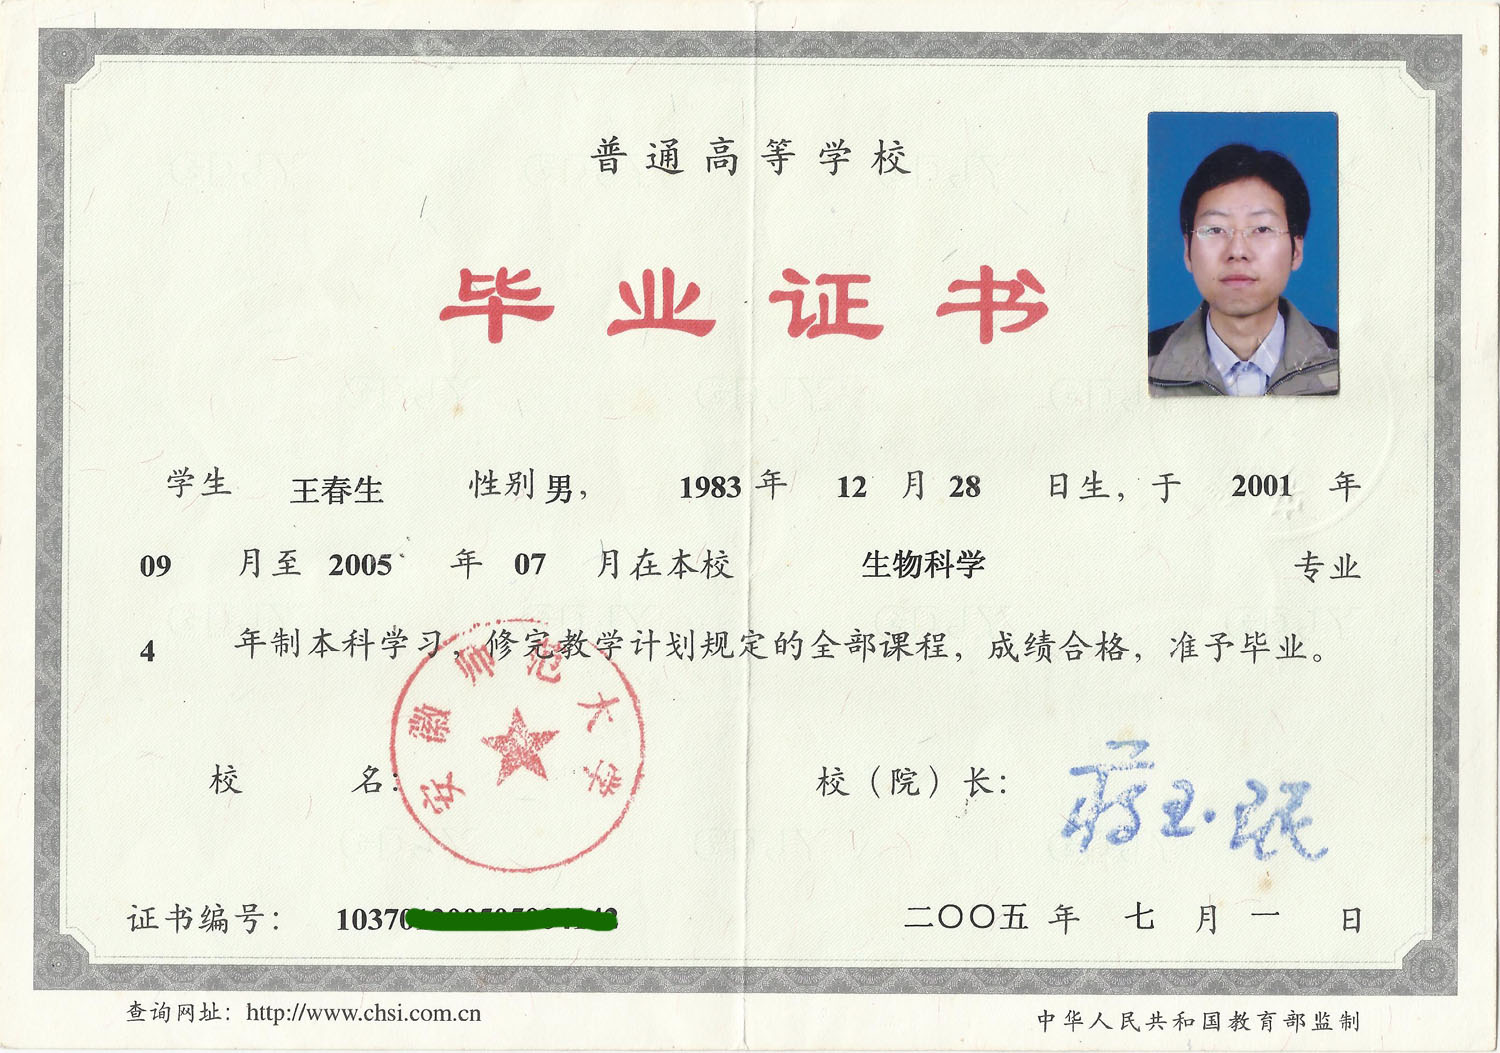 普通高等学校
毕业证书
学生 王春生 性别 男， 1983 年 12 月 28 日生，于 2001 年
09 月至 2005 年 07 月在本校 生物科学 专业
4 年制本科学习，修完教学计划规定的全部课程，成绩合格，准予毕业。
安徽师范大学
校 名： 校（院）长： 蒋玉珉
证书编号： 10370
二〇〇五 年 七 月 一 日
查询网址：http://www.chsi.com.cn
中华人民共和国教育部监制